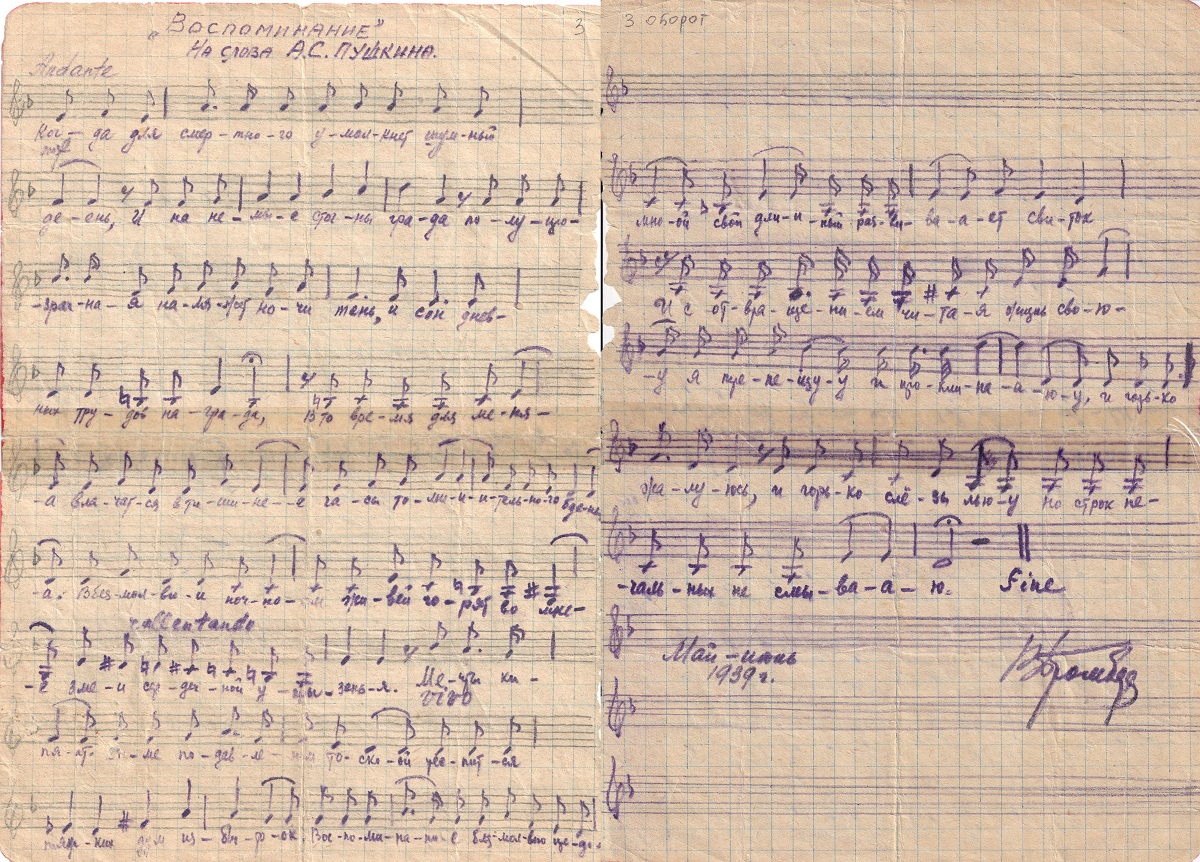 „Воспоминание"
3
На слова А.С. Пушкина.
Andante
Ког-да для смер-тно-го у-мол-кнет шум-ный
де-ень, И на не-мы-е сте-ны гра-да по-лу-про-
-зрач-на-я на-ля-жет но-чи тень, и сон днев-
ных тру-дов на-гра-да, В то вре-мя для ме-ня-
-а вла-чат-ся в ти-ши-не-е ча-сы то-ми-и-и-тель-но-го бде-нь
-а. В без-мол-ви-и ноч-но-м жи-вей го-рят во мне-
rallentando
-е зме-и сер-деч-ной у-гры-зень-я. Ме-чты ки-
vivo
пя-ят. В у-ме по-дав-ле-нном то-ско-ой тес-нит-ся
тяж-ких дум из-бы-то-ок. Вос-по-ми-на-ни-е без-мол-вно пре-до-
3 оборот
мно-ой свой дли-и-нный раз-ви-ва-а-ет сви-ток
И с от-вра-ще-ни-ем чи-та-я жизнь сво-ю-
-у я тре-пе-щу-у и про-кли-на-а-ю-у, и горь-ко
жа-лу-юсь, и горь-ко слё-зы лью-у но строк пе-
-чаль-ных не смы-ва-а-ю. Fine
Май-июнь
1939 г.